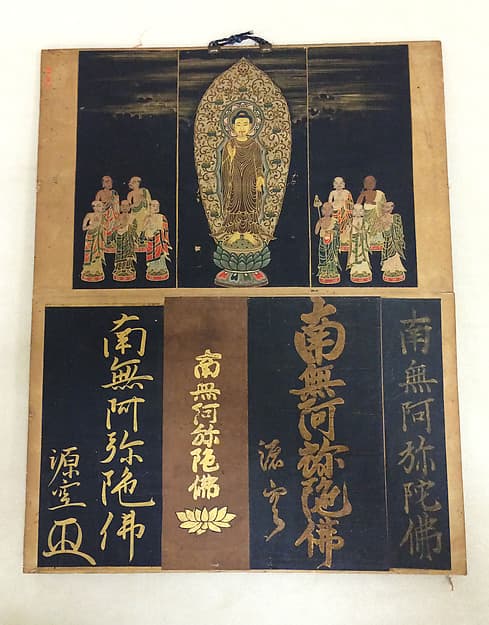 南無阿弥陀佛
南無阿弥陀佛
源空
南無阿弥陀佛
南無阿弥陀佛
源空